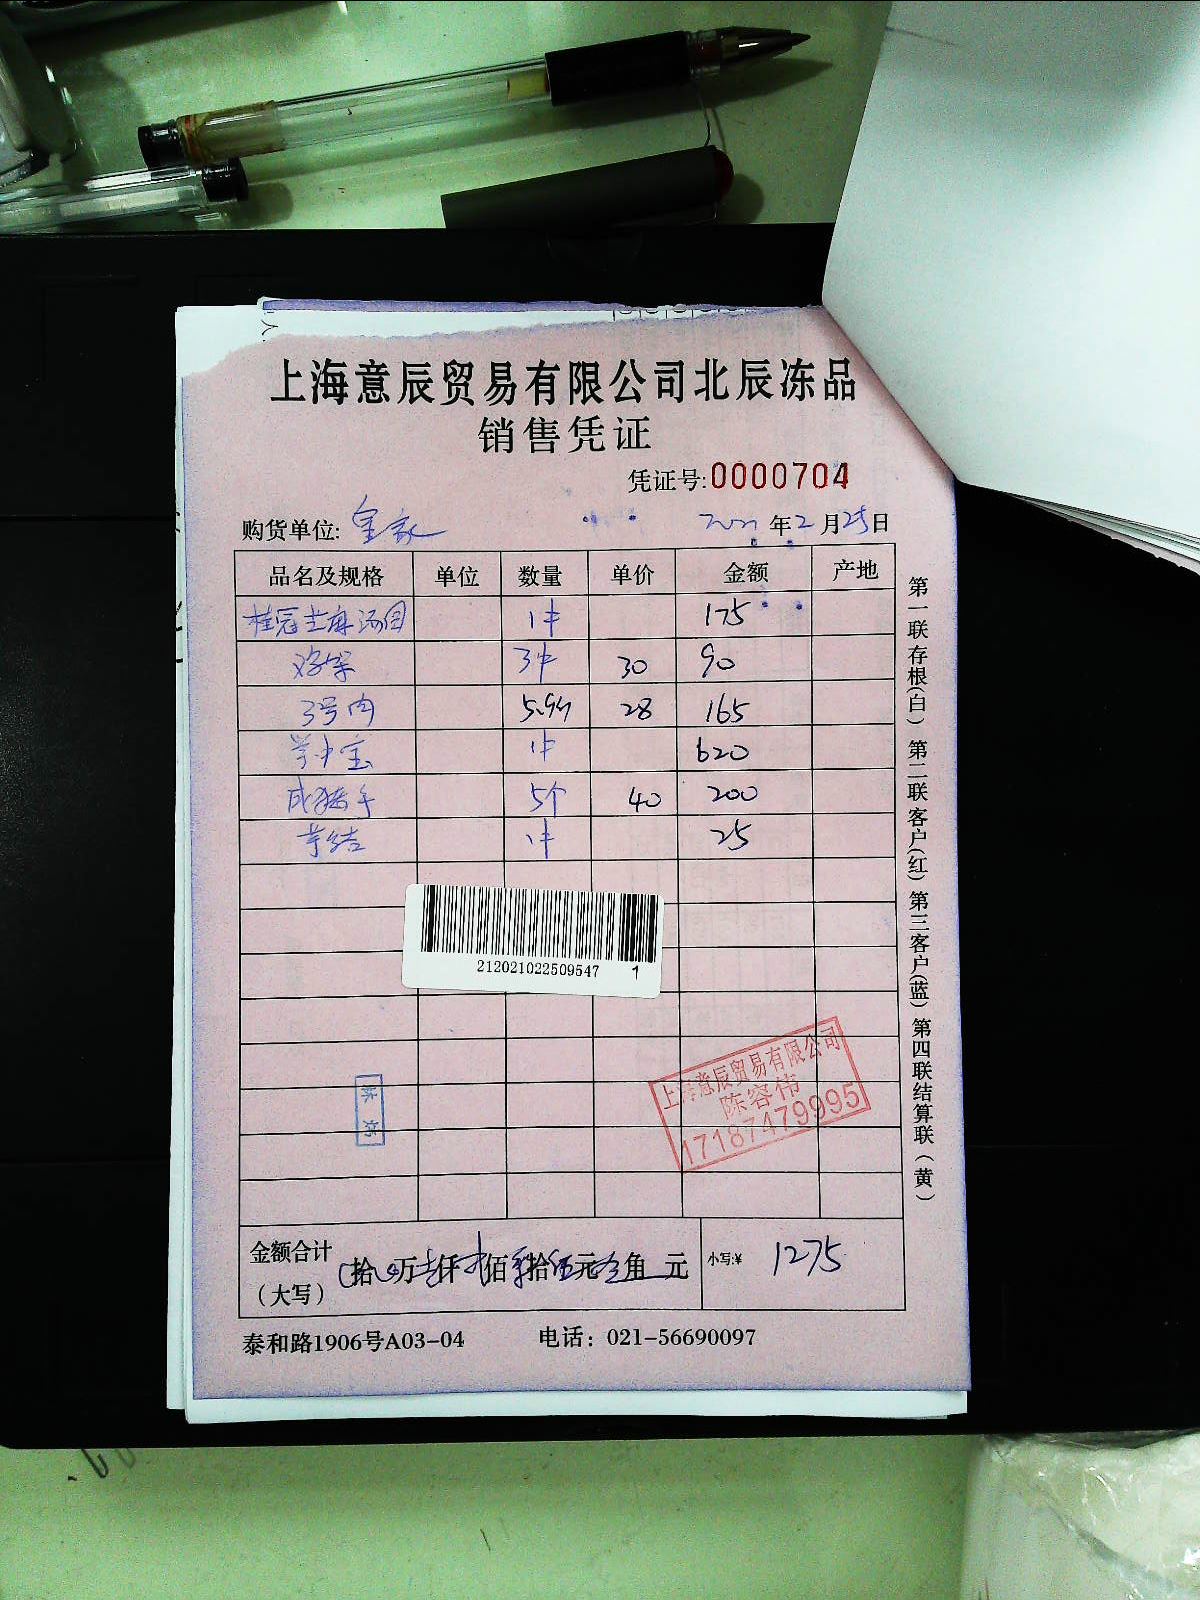 上海意辰贸易有限公司北辰冻品
销售凭证
凭证号:0000704
购货单位: 皇家 2021年2月25日
品名及规格 单位 数量 单价 金额 产地
桂冠芝麻汤圆 1件 175
鸡架 3件 30 90
3号肉 5.9斤 28 165
掌中宝 1件 620
成猪手 5个 40 200
芋结 1件 25
212021022509547 1
上海意辰贸易有限公司
陈容伟
17187479995
金额合计
(大写) 拾 万 仟 佰 拾伍元 角 元 小写:¥ 1275
泰和路1906号A03-04 电话: 021-56690097
第一联存根(白) 第二联客户(红) 第三客户(蓝) 第四联结算联(黄)